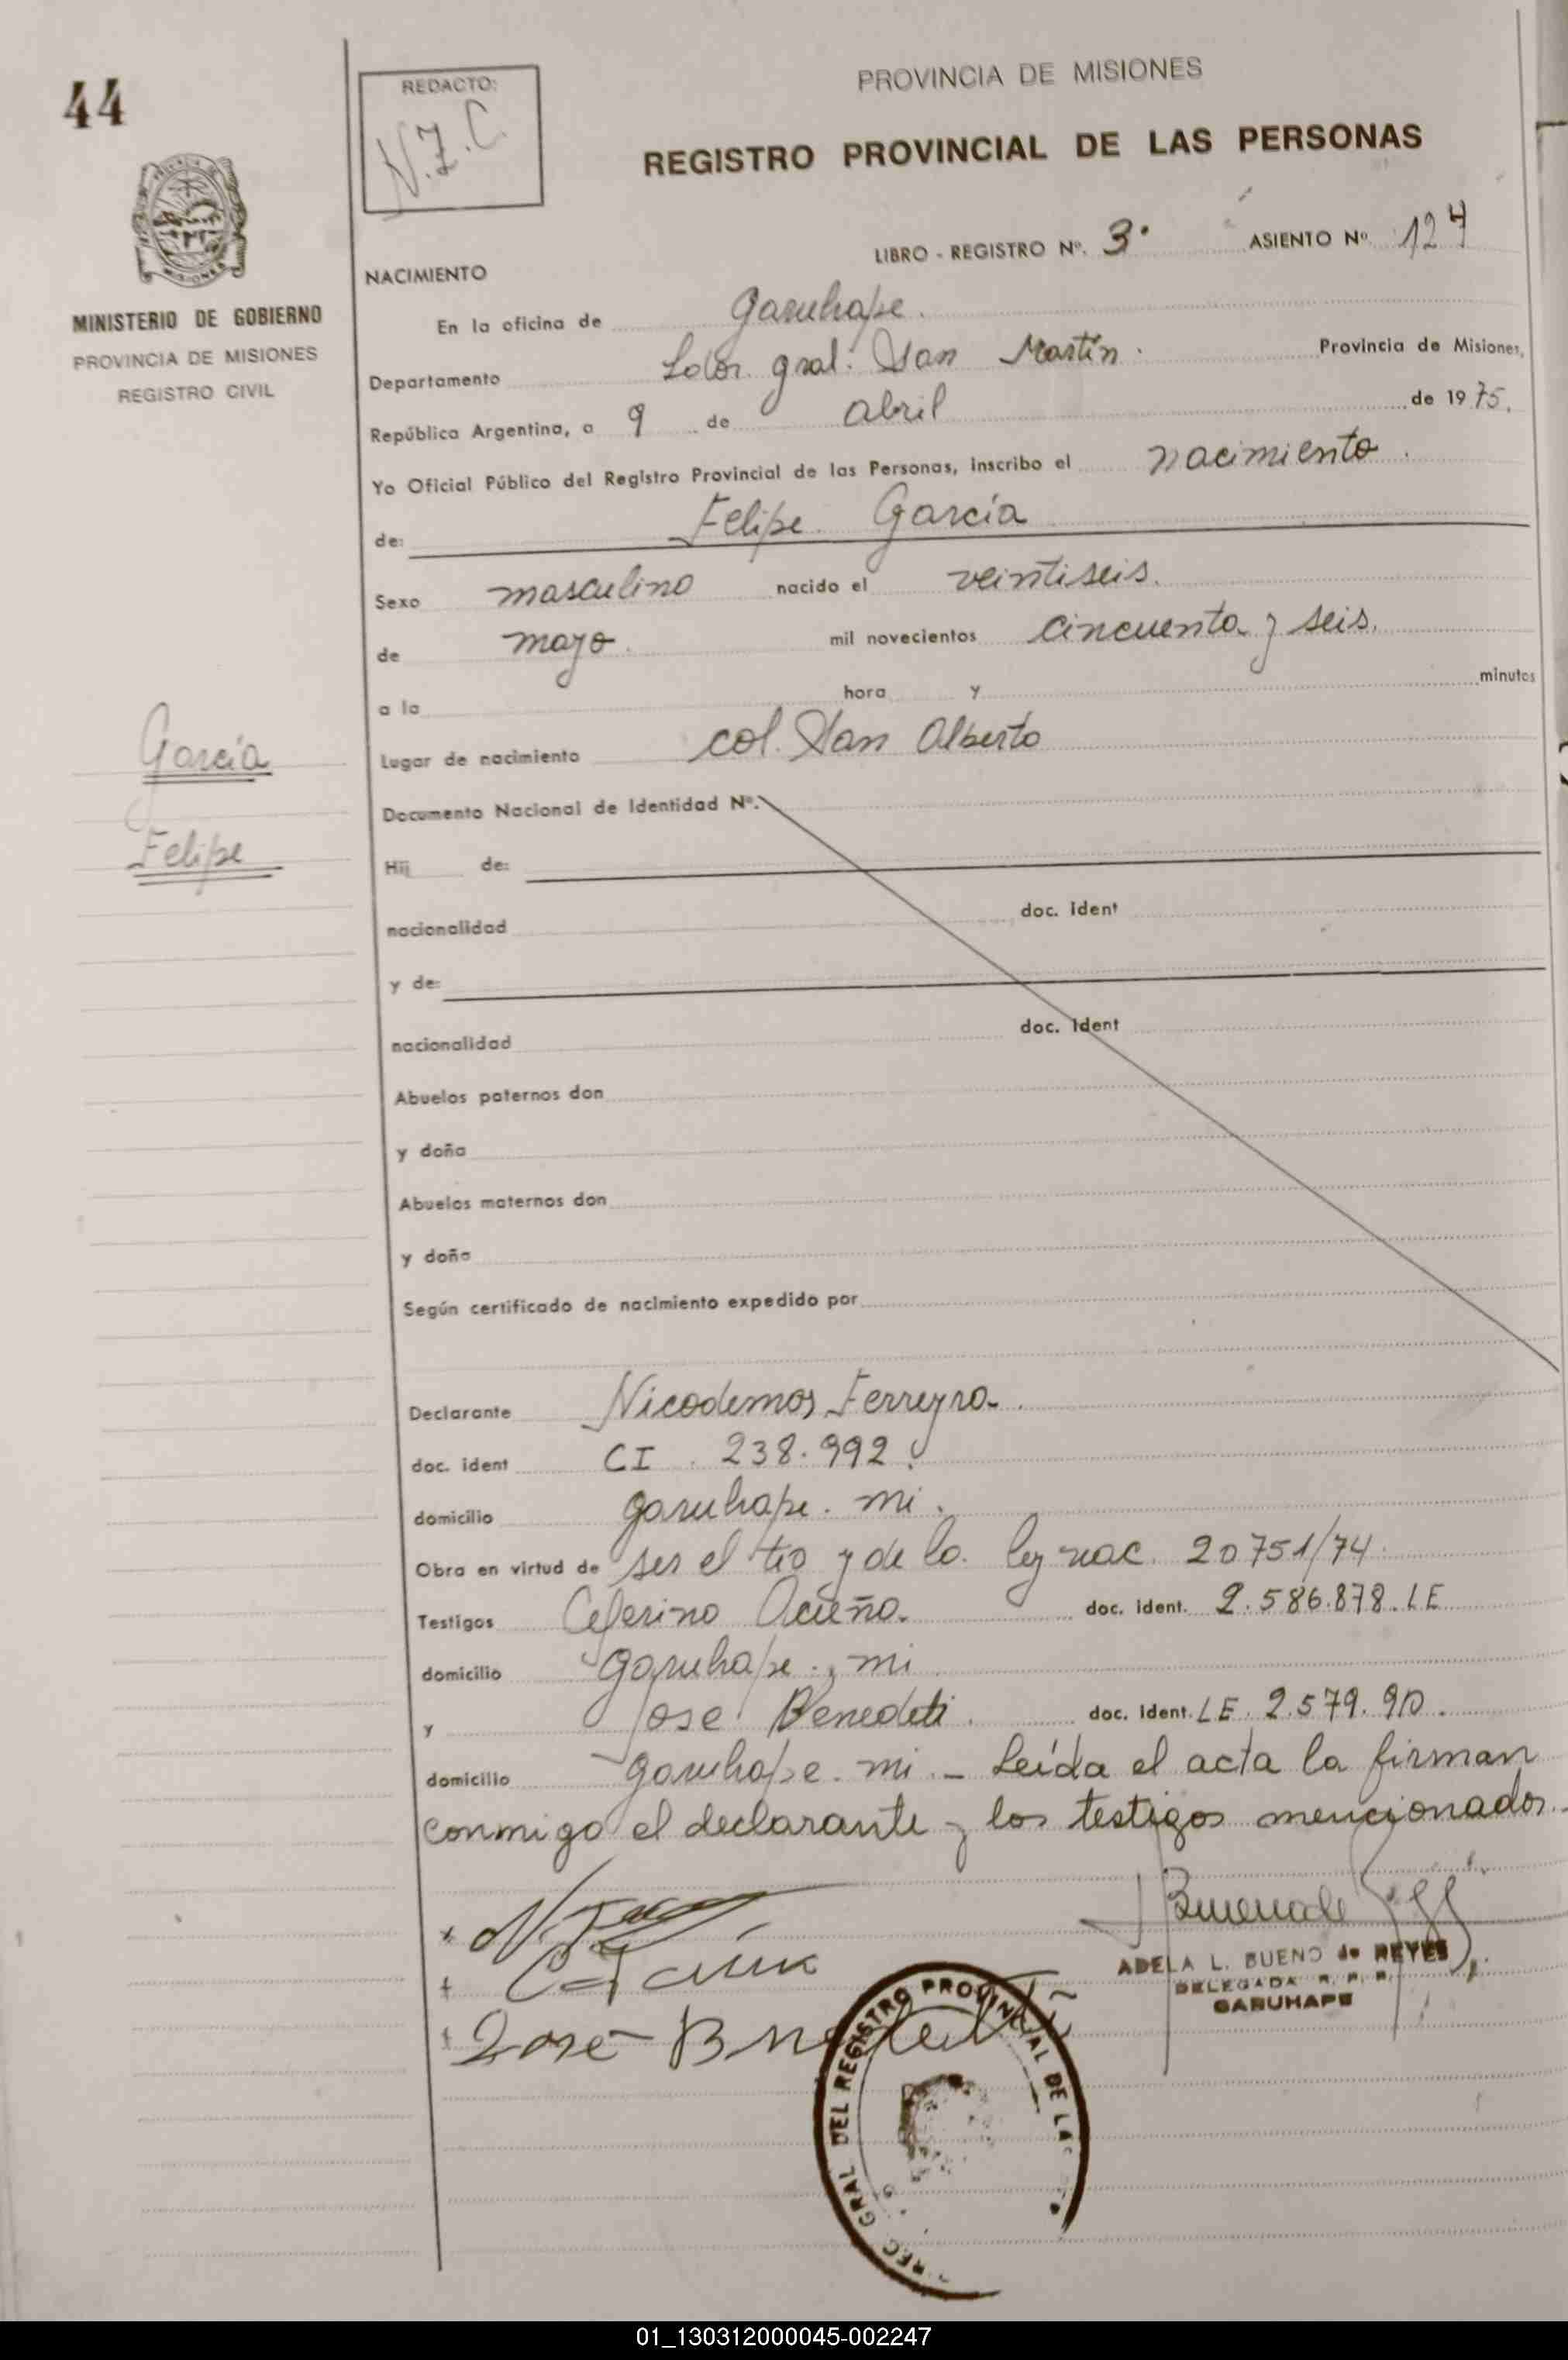 44
REDACTO:
N.J.C
PROVINCIA DE MISIONES
REGISTRO PROVINCIAL DE LAS PERSONAS
MISIONES
MINISTERIO DE GOBIERNO
PROVINCIA DE MISIONES
REGISTRO CIVIL
LIBRO - REGISTRO Nº. 3º ASIENTO Nº. 124
NACIMIENTO
En la oficina de Garuhape.
Departamento Ldor. gral. San Martín. Provincia de Misiones,
República Argentina, a 9 de abril de 1975.
Yo Oficial Público del Registro Provincial de las Personas, inscribo el nacimiento.
de: Felipe García
Sexo masculino nacido el veintiseis.
de mayo. mil novecientos cincuenta y seis.
a la hora y minutos
García
Lugar de nacimiento col. San Alberto
Documento Nacional de Identidad Nº.
Felipe
Hij de:
nacionalidad doc. ident
y de:
nacionalidad doc. ident
Abuelos paternos don
y doña
Abuelos maternos don
y doña
Según certificado de nacimiento expedido por
Declarante Nicodemos Ferreyra.
doc. ident CI. 238.992.
domicilio garuhape. mi.
Obra en virtud de ser el tio y de la ley nac. 20751/74.
Testigos Ceferino Acuña. doc. ident. 2.586.878. LE
domicilio garuhape., mi
y Jose Benedeti. doc. ident. LE. 2.579.910.
domicilio garuhape. mi. - Leída el acta la firman
conmigo el declarante y los testigos mencionados.-
ADELA L. BUENO de REYES
DELEGADA R. P. P.
GARUHAPE
José B
REC GRAL DEL REGISTRO PROVINCIAL DE LA
01_130312000045-002247